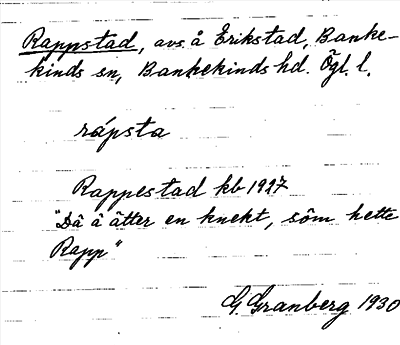 Rappstad, avs å Erikstad, Banke-
kinds sn, Bankekinds hd. Ögl. l.
rápsta
Rappestad kb 1927
"Dä ä ätter en knekt, sôm hette
Rapp"
G. Granberg 1930